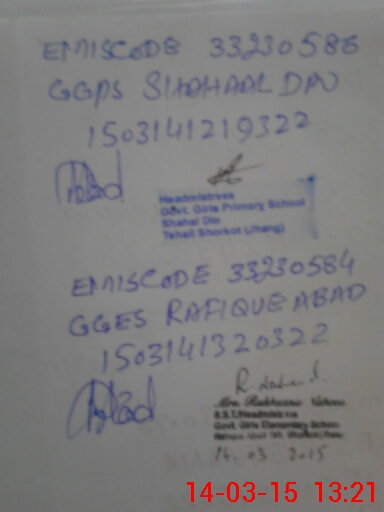 EMISCODE 33230586
GGPS SHAHAAL DAV
1503141219322
Headmistress
Govt. Girls Primary School
Shahal Dio
Tehsil Shorkot (Jhang)
EMISCODE 33230584
GGES RAFIQUEABAD
1503141320322
Mrs. Rukhsana
S.S.T/Headmistress
Govt. Girls Elementary School
14.03.2015
14-03-15 13:21